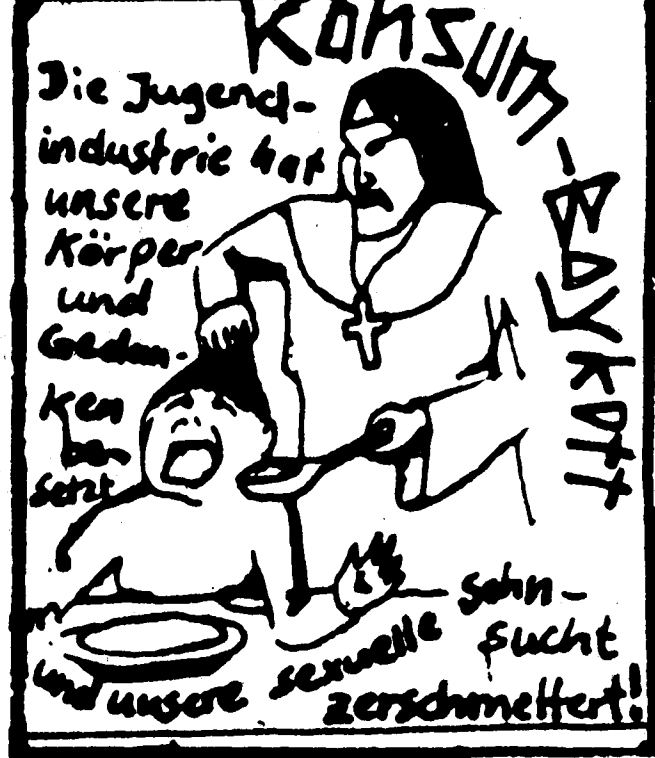 Konsum-Boykott
Die Jugend-
industrie hat
unsere
Körper
und
Gedan-
ken
be-
setzt
und unsere sexuelle Sehn-
sucht
zerschmettert!